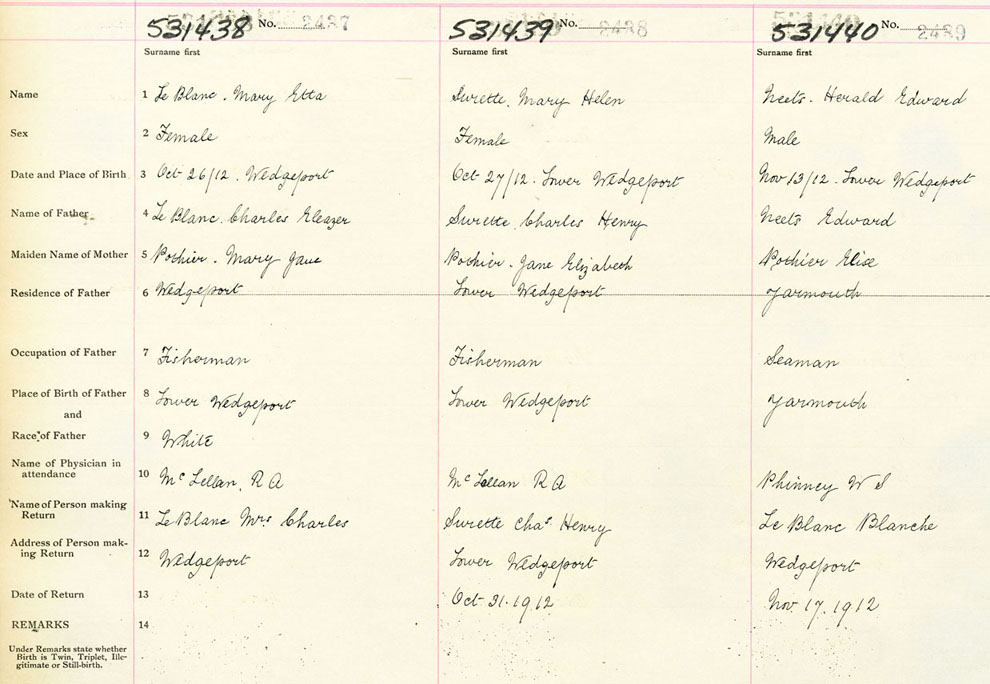 531438 No. 2437 531439 No. 2438 531440 No. 2439
Surname first Surname first Surname first
Name 1 Le Blanc. Mary Etta Surette, Mary Helen Neets. Herald Edward
Sex 2 Female Female Male
Date and Place of Birth 3 Oct 26/12. Wedgeport Oct 27/12. Lower Wedgeport Nov 13/12. Lower Wedgeport
Name of Father 4 Le Blanc. Charles Eleazer Surette, Charles Henry Neets Edward
Maiden Name of Mother 5 Pothier. Mary Jane Pothier. Jane Elizabeth Pothier Elise
Residence of Father 6 Wedgeport Lower Wedgeport Yarmouth
Occupation of Father 7 Fisherman Fisherman Seaman
Place of Birth of Father 8 Lower Wedgeport Lower Wedgeport Yarmouth
and
Race of Father 9 White
Name of Physician in
attendance 10 McLellan, R A McLellan R A Phinney W S
Name of Person making
Return 11 Le Blanc Mrs Charles Surette Chas Henry Le Blanc Blanche
Address of Person mak-
ing Return 12 Wedgeport Lower Wedgeport Wedgeport
Date of Return 13 Oct 31. 1912 Nov 17. 1912
REMARKS 14
Under Remarks state whether
Birth is Twin, Triplet, Ille-
gitimate or Still-birth.